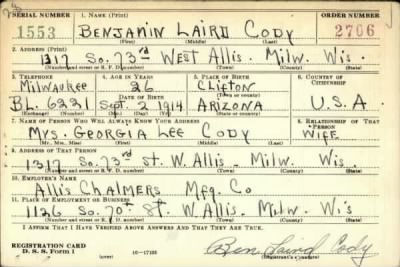 SERIAL NUMBER 1. NAME (Print) ORDER NUMBER
1553 BENJAMIN LAIRD CODY 2706
(First) (Middle) (Last)
2. ADDRESS (Print)
1317 So. 73rd WEST Allis. Milw. Wis.
(Number and street or R. F. D. number) (Town) (County) (State)
3. TELEPHONE 4. AGE IN YEARS 5. PLACE OF BIRTH 6. COUNTRY OF CITIZENSHIP
Milwaukee 26 Clifton
DATE OF BIRTH (Town or county)
BL. 6221 Sept. 2 1914 ARIZONA U.S.A.
(Exchange) (Number) (Mo.) (Day) (Yr.) (State or country)
7. NAME OF PERSON WHO WILL ALWAYS KNOW YOUR ADDRESS 8. RELATIONSHIP OF THAT PERSON
Mrs. GEORGIA LEE CODY WIFE
(Mr., Mrs., Miss) (First) (Middle) (Last)
9. ADDRESS OF THAT PERSON
1317 So. 73rd St. W. Allis. Milw. Wis
(Number and street or R. F. D. number) (Town) (County) (State)
10. EMPLOYER'S NAME
Allis Chalmers Mfg. Co
11. PLACE OF EMPLOYMENT OR BUSINESS
1126 So. 70th St. W. Allis. Milw. Wis
(Number and street or R. F. D. number) (Town) (County) (State)
I AFFIRM THAT I HAVE VERIFIED ABOVE ANSWERS AND THAT THEY ARE TRUE.
REGISTRATION CARD
D. S. S. Form 1 (over) 16—17105 Ben Laird Cody
(Registrant's signature)